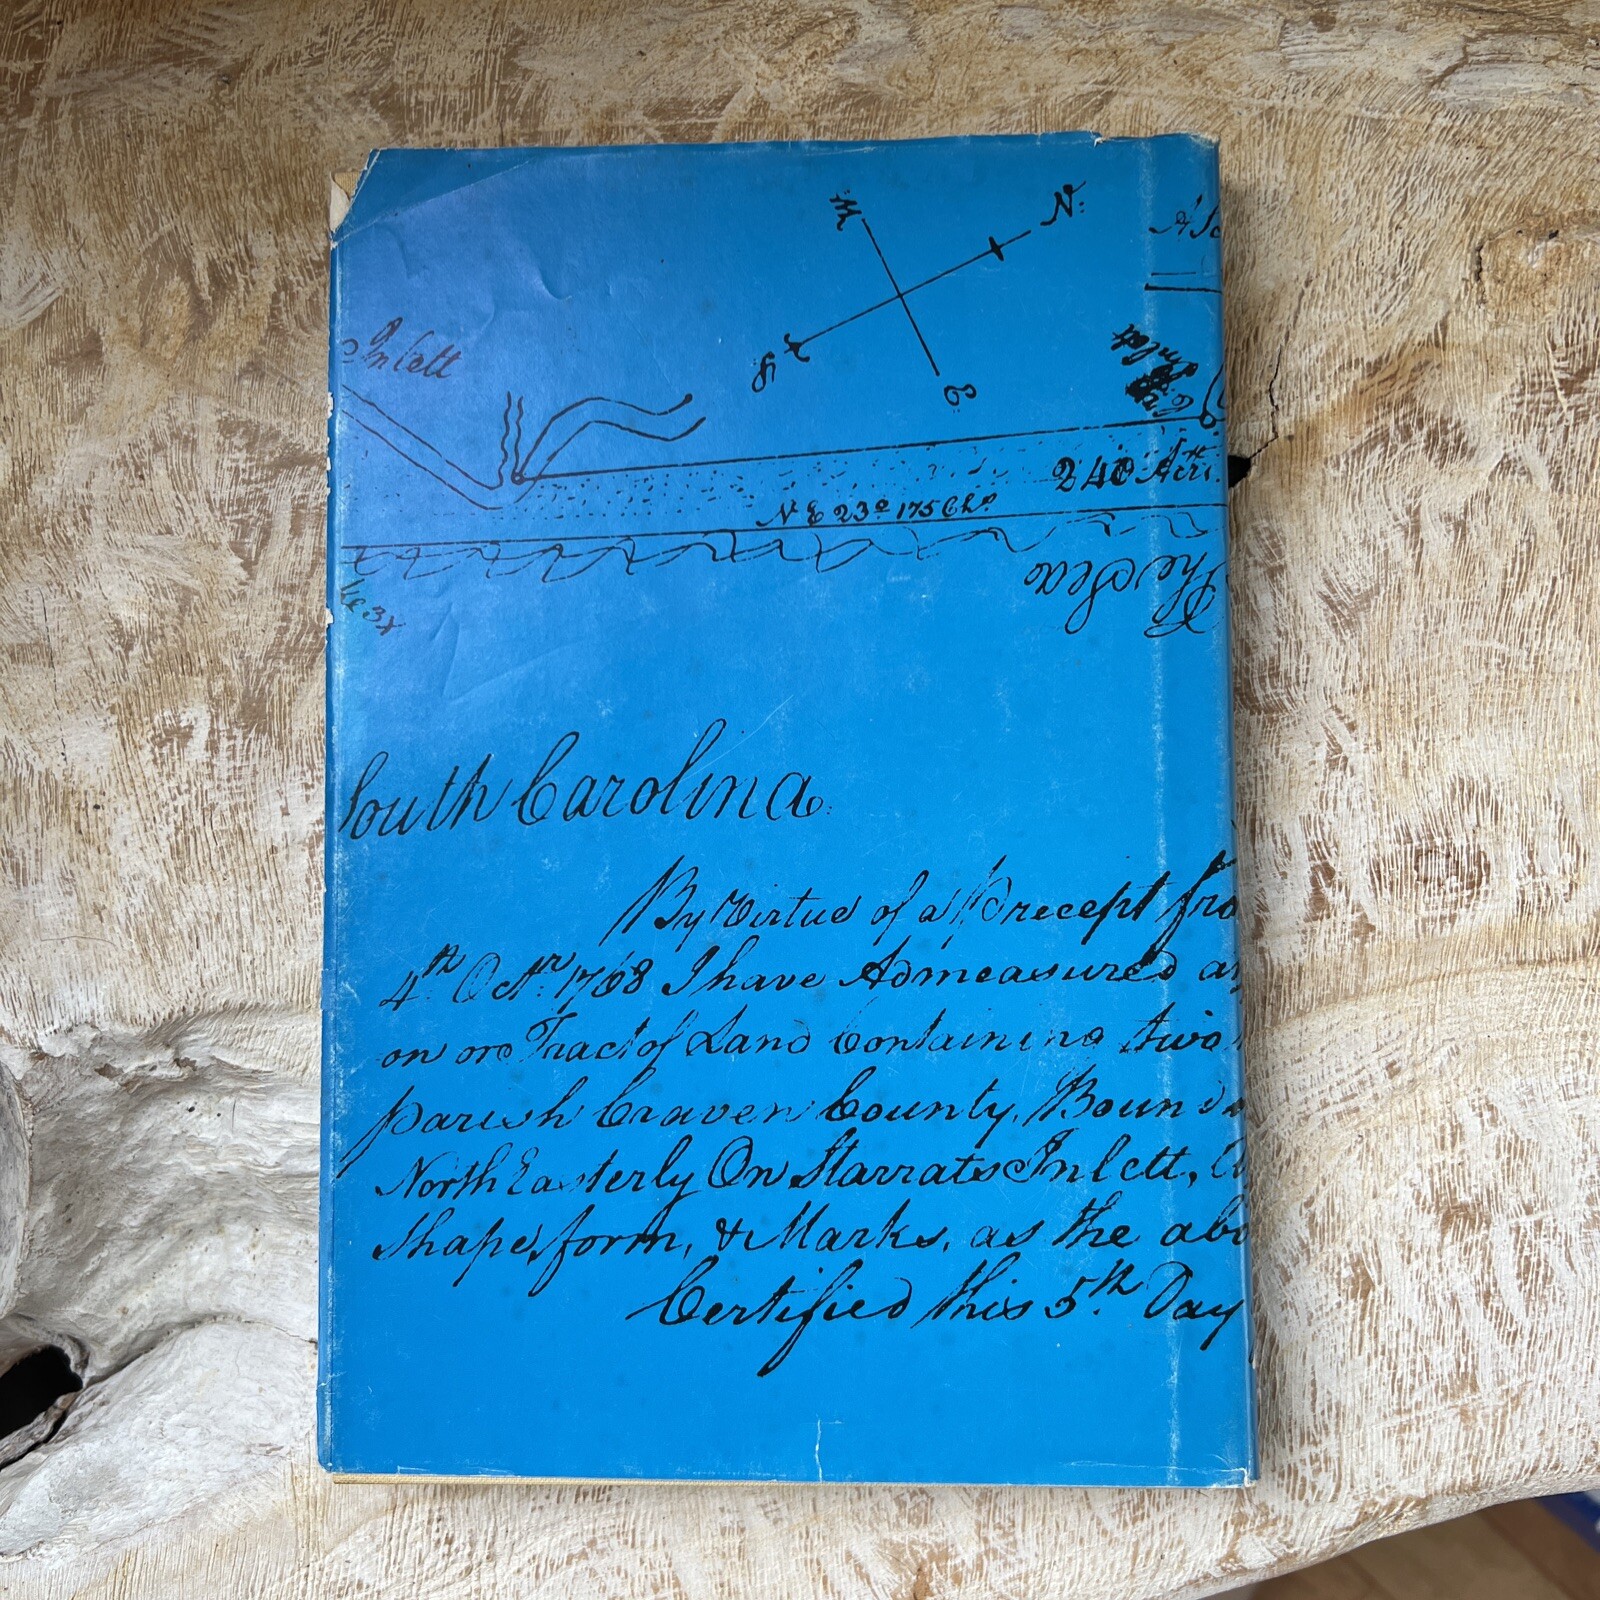 W:
N:
Inlett
S:
E:
Inlet
240 Acrs
N E 23° 175 Chs
The Sea
South Carolina:
By Virtue of a Precept fro
4th Octr. 1768 I have Admeasured an
on one Tract of Land Containing two
parish Craven County, Bound
North Easterly On Starrats Inlett,
Shape, form, & Marks, as the abo
Certified this 5th Day